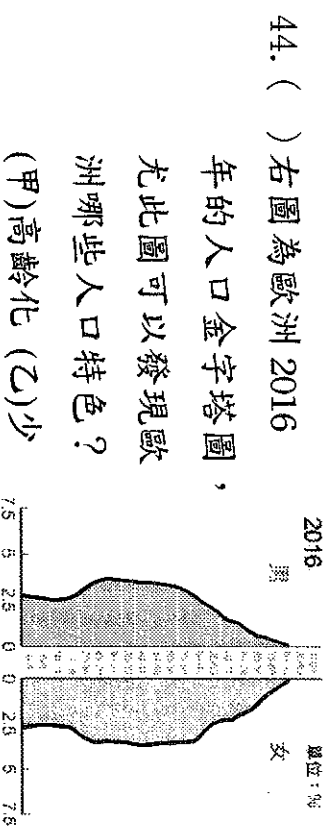 44. (　)右圖為歐洲 2016
年的人口金字塔圖，
尤此圖可以發現歐
洲哪些人口特色？
(甲)高齡化 (乙)少
2016
男
女
單位：%
7.5 5 2.5 0 0 2.5 5 7.5